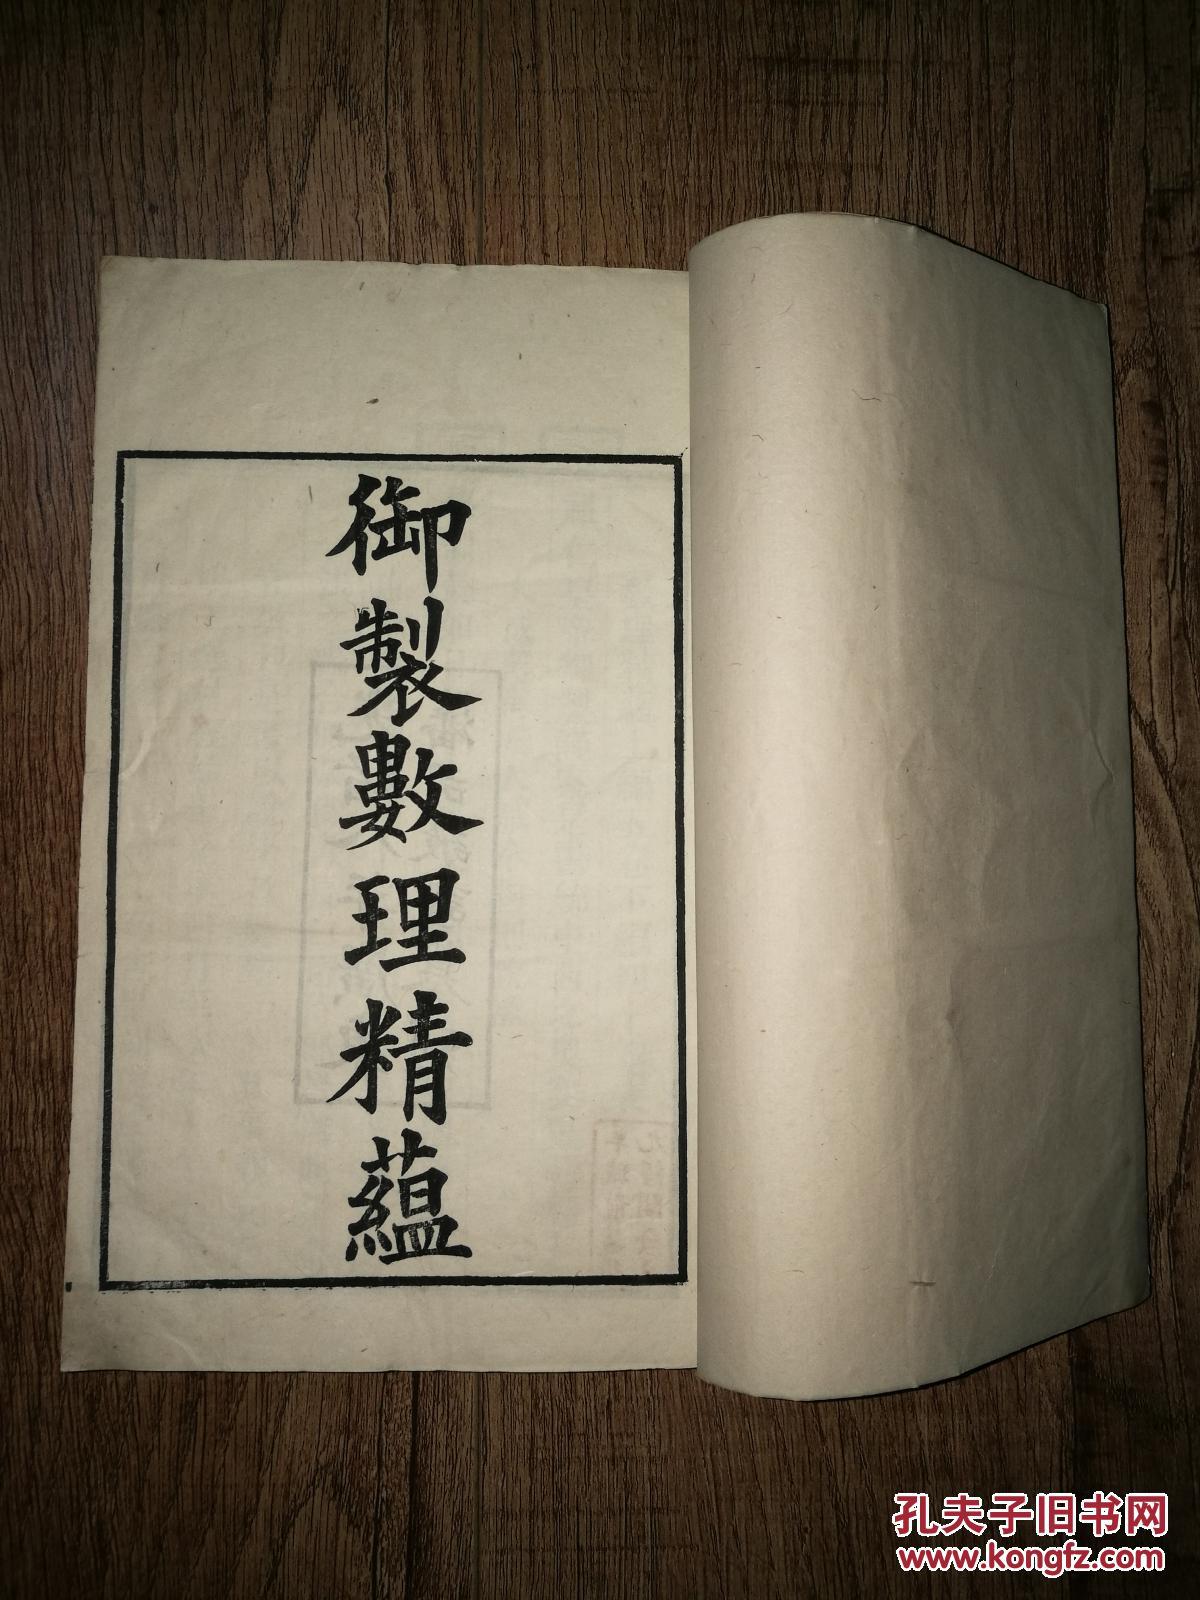 御製數理精蘊
孔夫子旧书网
www.kongfz.com